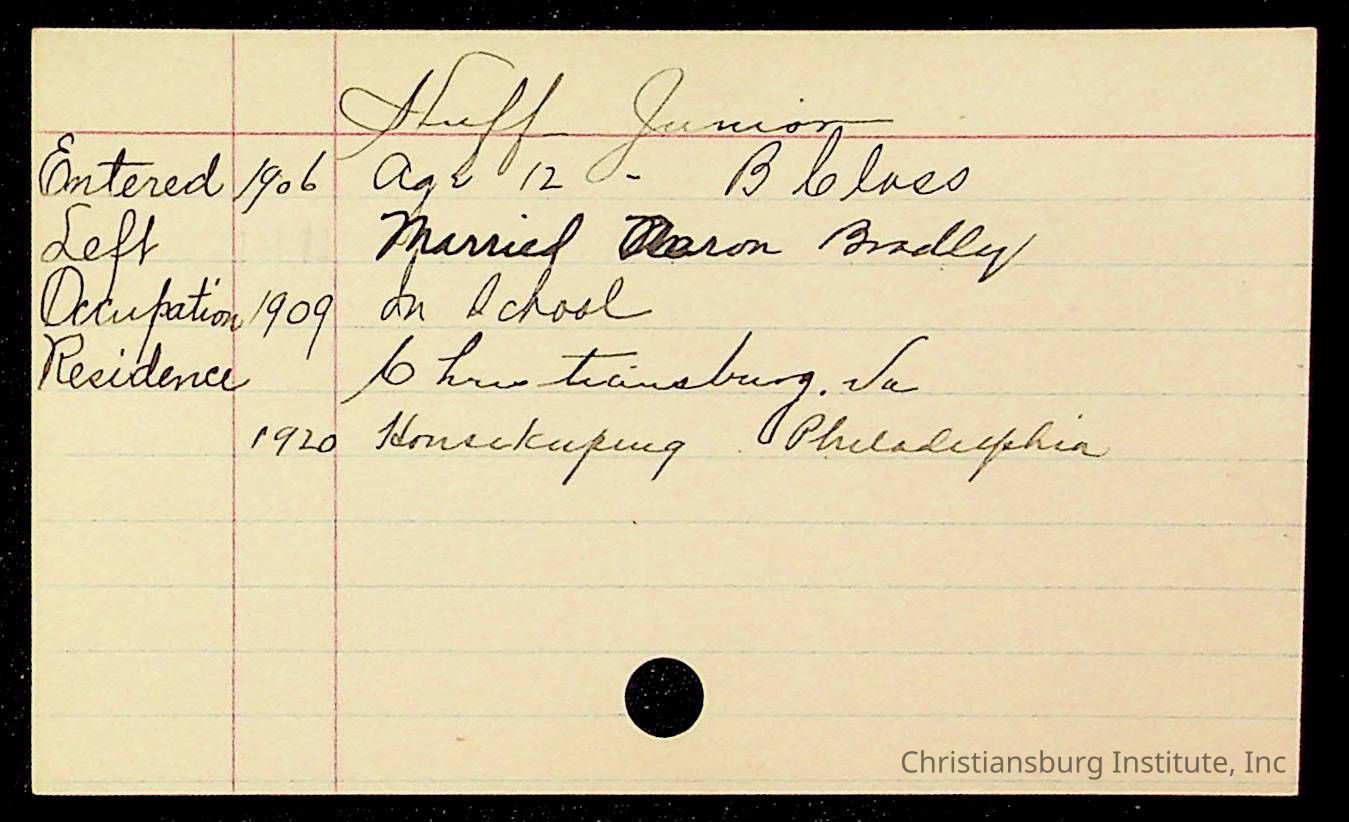 Huff Junior
Entered 1906 Age 12 - B Class
Left Married Aaron Bradley
Occupation 1909 In School
Residence Christiansburg, Va
1920 Housekeeping Philadelphia
Christiansburg Institute, Inc